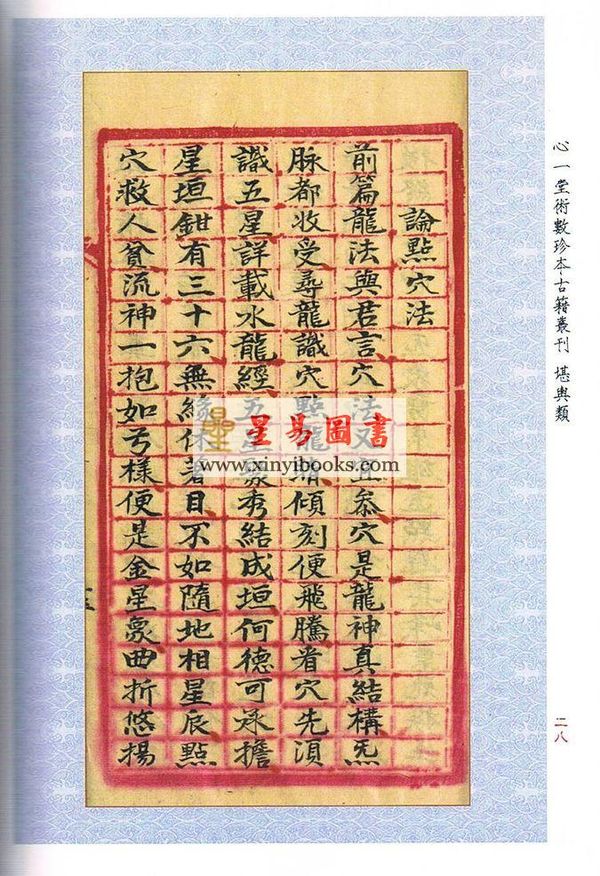 心一堂術數珍本古籍叢刊 堪輿類
二八
論點穴法
前篇龍法與君言穴法又宜叅穴是龍神真結構炁
脉都收受尋龍識穴點龍睛傾刻便飛騰看穴先須
識五星詳載水龍經五星聚秀結成垣何德可承擔
星垣鉗有三十六無緣休著目不如隨地相星辰點
穴救人貧流神一抱如弓樣便是金星象曲折悠揚
星易圖書
www.xinyibooks.com